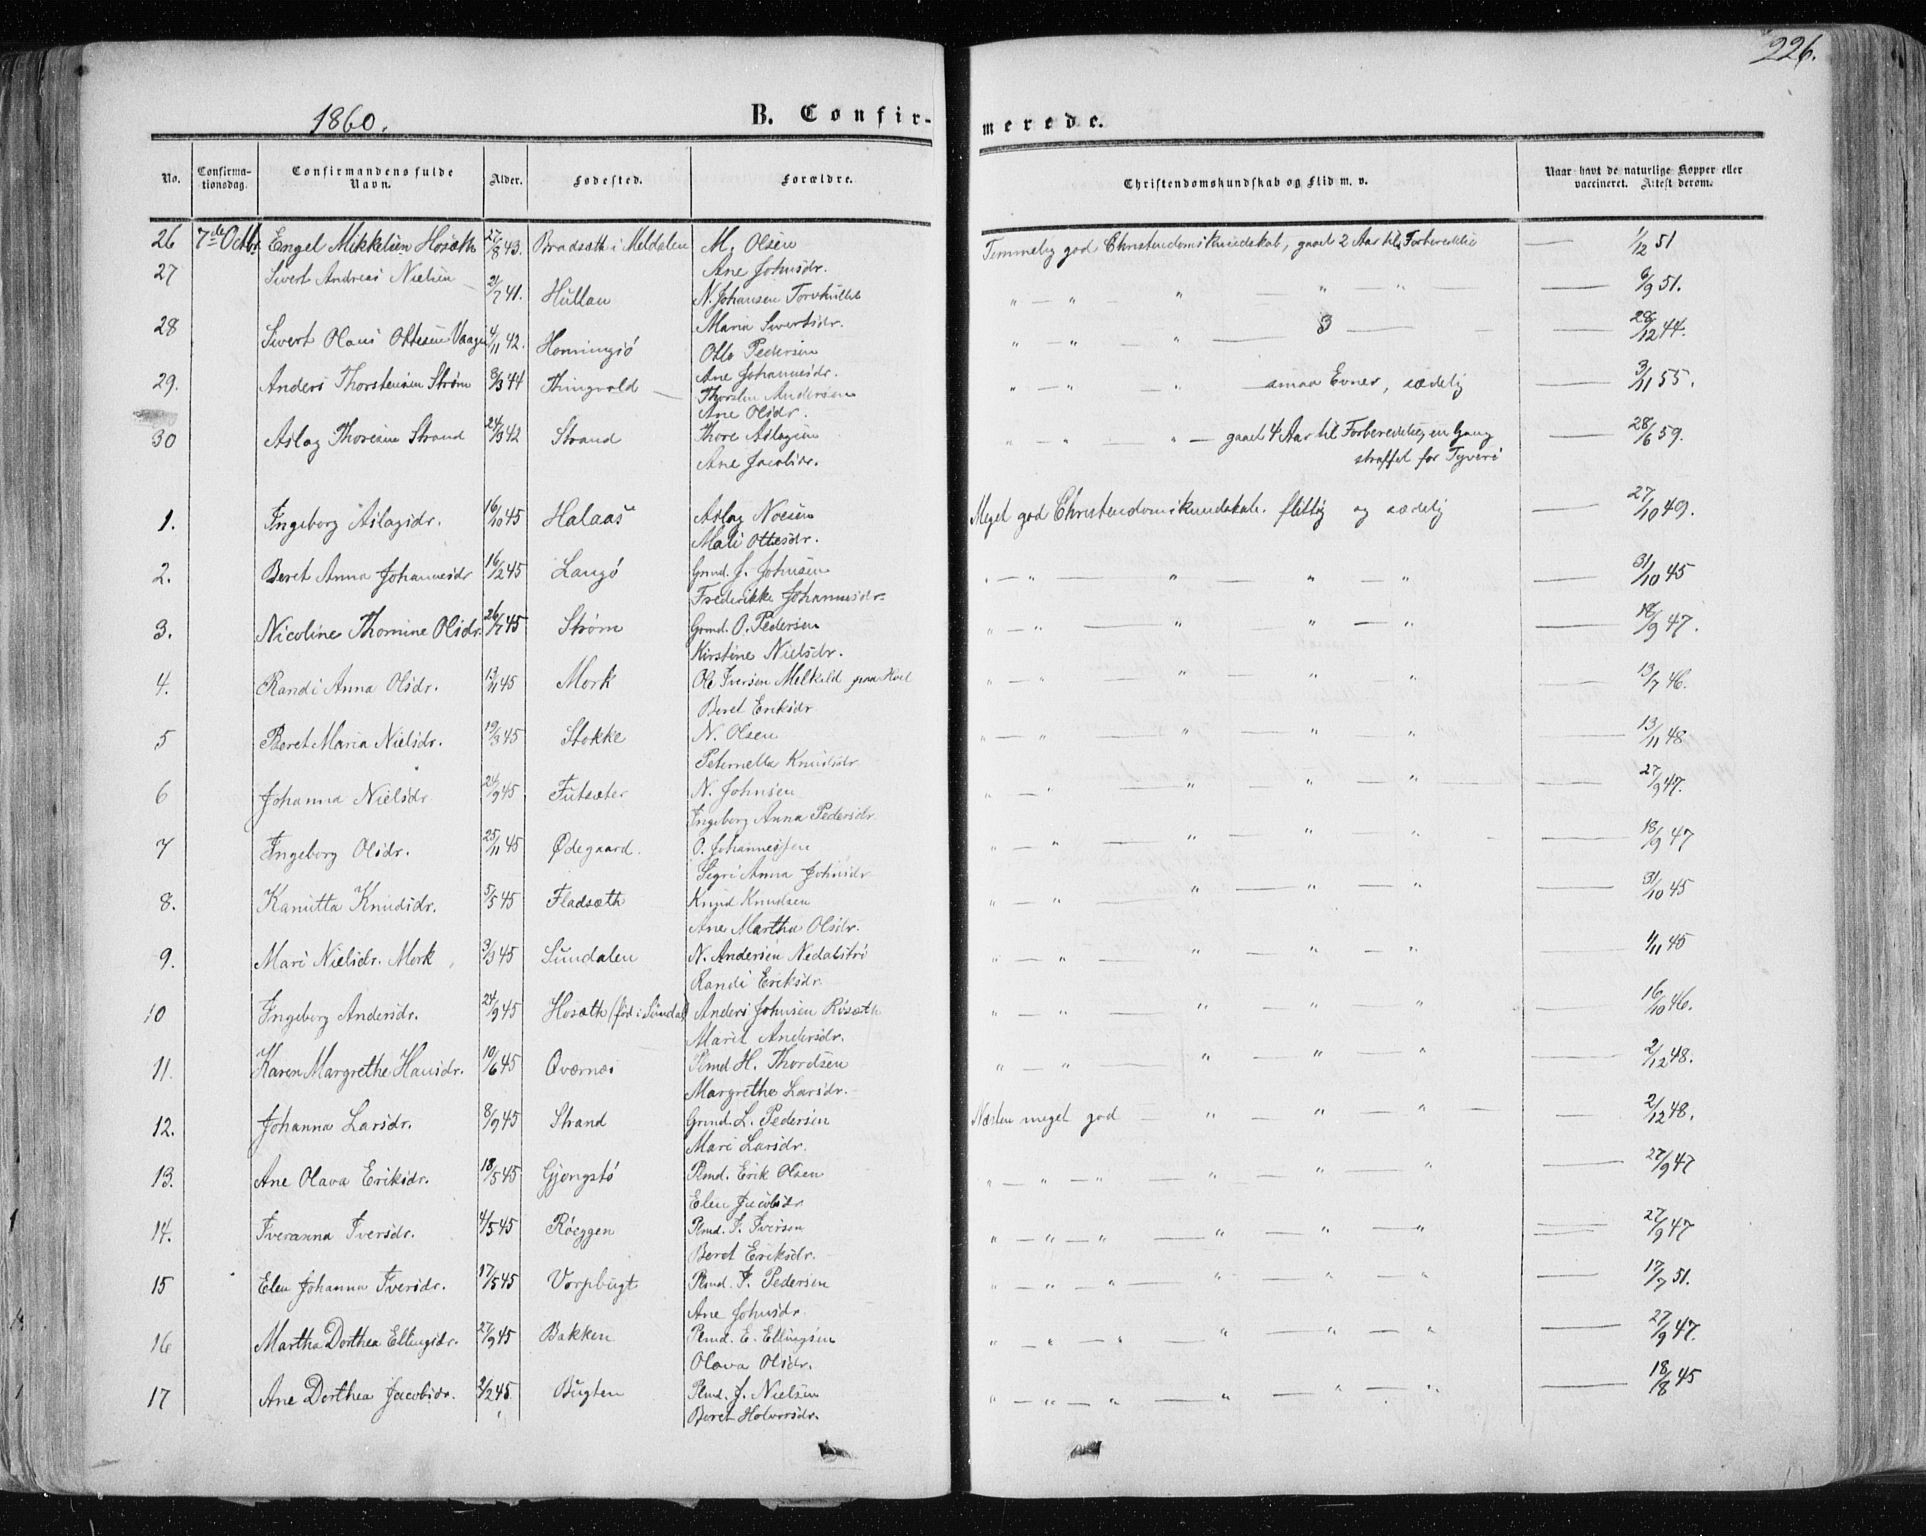 226.
1860.
B. Confir-
merede.
No.
Confirma-
tionsdag.
Confirmandens fulde
Navn.
Alder.
Fødested.
Forældre.
Christendomskundskab og Flid m. v.
Naar havt de naturlige Kopper eller
vaccineret. Attest derom.
26 7de Octbr. Engel Mikkelsen Hosæth 27/8 43. Bradsæth i Meldalen M. Olsen Temmelig god Christendomskundskab, gaaet 2 Aar til Forberedelse — 1/12 51
Ane Johnsdr.
27 Sivert Andreas Nielsen 2/7 41. Hullan N. Johansen Torvhullet " — " " — " — " — 6/9 51.
Maria Sivertsdr.
28 Sivert Olaus Ottesen Vaagen 4/11 42. Honningsö Otto Pedersen " — " " 3 — — 28/12 44.
Ane Johannesdr.
29. Anders Thorstensen Strøm 8/3 44 Thingvold — Thorsten Andersen " — " " — smaa Evner, sædelig — 3/11 55.
Ane Olsdr.
30 Aslag Thoresen Strand 24/3 42 Strand Thore Aslagsen " — " — " — gaaet 4 Aar til Forberedelse, en Gang — 28/6 59.
Ane Jacobsdr. straffet for Tyveri
1. Ingeborg Aslagsdr. 16/10 45 Halaas Aslag Noesen Meget god Christendomskundskab. flittig og sædelig — 27/10 49.
Mali Ottesdr.
2. Beret Anna Johannesdr 16/2 45 Langö Grmd. J. Johnsen " — " — " — " — " — 31/10 45
Frederikke Johannesdr.
3. Nicoline Thomine Olsdr. 26/7 45 Strøm Grmd. O. Pedersen " — " — " — " — " — 18/9 47.
Kirstine Nielsdr.
4. Randi Anna Olsdr. 13/11 45 Mork Ole Iversen Melkild paa Hoel " — " — " — " — " — 13/7 46.
Beret Eriksdr
5 Beret Maria Nielsdr. 19/3 45 Stokke N. Olsen " — " — " — " — " — 13/11 48
Peternella Knudsdr
6 Johanna Nielsdr 24/9 45 Futsæter N. Johnsen " — " — " — " — " — 27/9 47.
Ingeborg Anna Pedersdr
7 Ingeborg Olsdr. 25/11 45 Ødegaard. O. Johannessen " — " — " — " — " — 18/9 47
Segri Anna Johnsdr
8. Kanutta Knudsdr. 5/5 45 Fladsæth Knud Knudsen " — " — " — " — " — 31/10 45
Ane Martha Olsdr.
9. Mari Nielsdr. Mork 3/3 45 Sundalen N. Andersen Nedalströ " — " — " — " — " — 1/11 45
Randi Eriksdr
10 Ingeborg Andersdr. 24/9 45 Hosæth (fød i Sundal) Anders Johnsen Rösæth " — " — " — " — " — 16/10 46.
Marit Andersdr.
11. Karen Margrethe Hansdr. 10/6 45 Qværnes Plmd H. Thordsen " — " — " — " — " — 2/12 48.
Margrethe Larsdr.
12. Johanna Larsdr. 8/9 45 Strand Grmd. L. Pedersen Næsten meget god — " — " — " — 2/12 48.
Mari Larsdr.
13. Ane Olava Eriksdr. 18/5 45 Gjengstö Plmd. Erik Olsen " — " — " — " — " — " — 27/9 47
Elen Jacobsdr
14. Iveranna Iversdr. 4/5 45 Röeggen Plmd. I. Iversen " — " — " — " — " — " — 27/9 47
Beret Eriksdr.
15 Elen Johanna Iversdr. 17/5 45 Vorpbugt Plmd. I. Pedersen " — " — " — " — " — " — 17/7 51.
Ane Johnsdr.
16 Martha Dorthea Ellingsdr. 27/9 45 Bakken Plmd. E. Ellingsen " — " — " — " — " — " — 27/9 47.
Olava Olsdr.
17 Ane Dorthea Jacobsdr. 2/2 45 Bugten Plmd. J. Nielsen " — " — " — " — " — " — 18/8 45
Beret Holversdr.